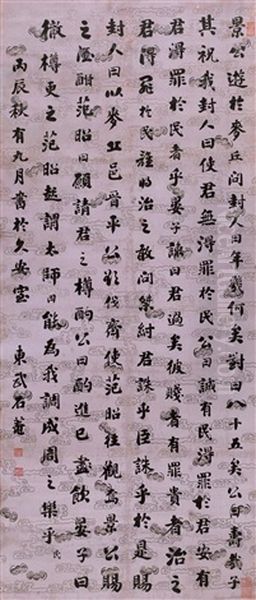 景公遊於麥丘問封人曰年幾何矣對曰八十五矣公曰壽哉子
其祝我封人曰使君無得罪於民公曰誠有民得罪於君安有
君得罪於民者乎晏子諫曰君過矣彼賤者有罪貴者治之
君得罪於民誰將治之敢問桀紂君誅乎臣誅乎於是賜
封人曰以麥丘邑晉平公欲伐齊使范昭往觀焉景公賜
之酒酣范昭曰願請君之樽酌公曰酌進已盡飲晏子曰
徹樽更之范昭趨謂太師曰能為我調成周之樂乎 民
丙辰秋有九月書於久安室
東武石菴